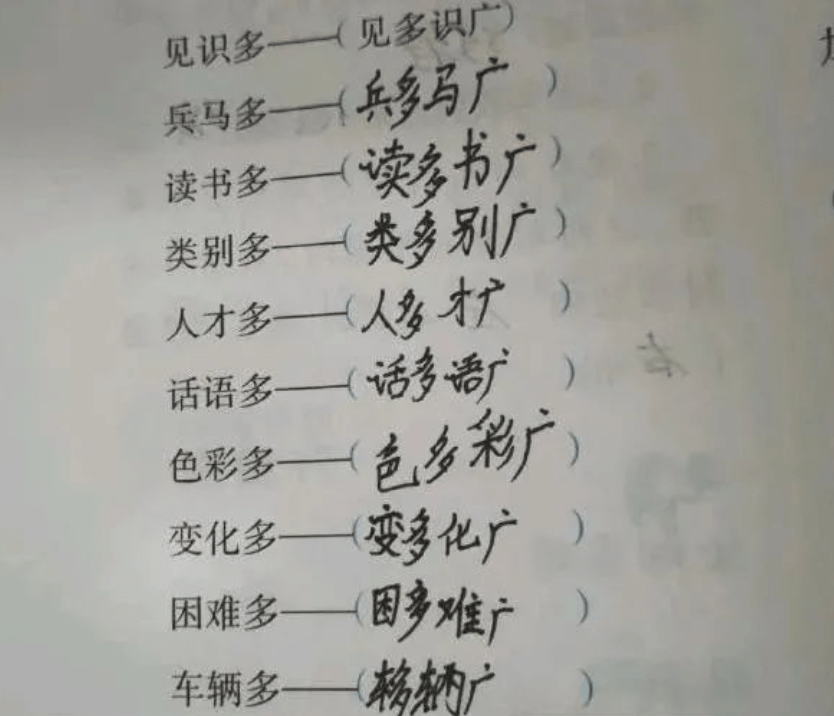 见识多——(见多识广)
兵马多——(兵多马广)
读书多——(读多书广)
类别多——(类多别广)
人才多——(人多才广)
话语多——(话多语广)
色彩多——(色多彩广)
变化多——(变多化广)
困难多——(困多难广)
车辆多——(车多辆广)